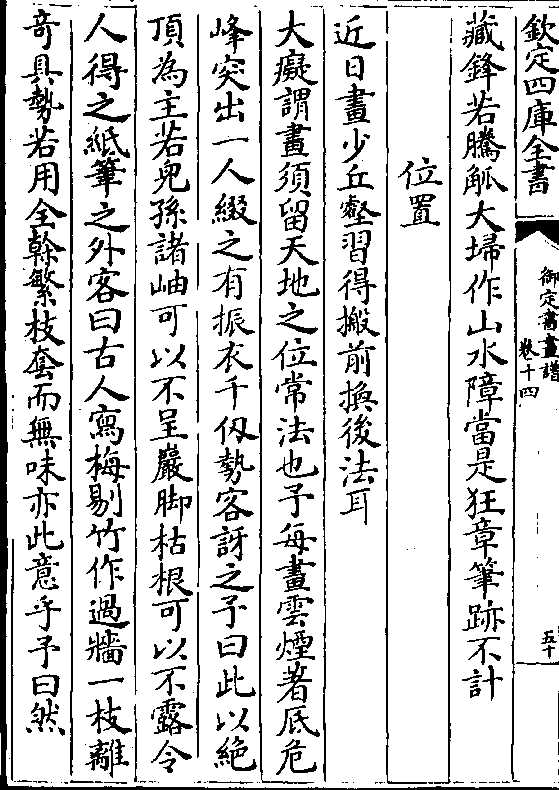 欽定四庫全書
御定書畫譜
卷十四
五十
藏鋒若騰觚大埽作山水障當是狂章筆跡不計
位置
近日畫少丘壑習得搬前換後法耳
大癡謂畫須留天地之位常法也予每畫雲煙著底危
峰突出一人綴之有振衣千仭勢客訝之予曰此以絶
頂為主若兒孫諸岫可以不呈巖脚枯根可以不露令
人得之紙筆之外客曰古人寫梅剔竹作過牆一枝離
奇具勢若用全幹繁枝套而無味亦此意乎予曰然